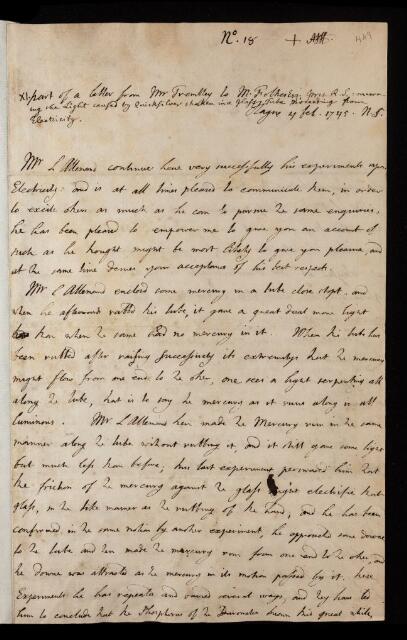 No. 18 +
part of a letter from Mr Trembley to M. Folkes Esq. Pres. R.S. concern-
ing the Light caused by Quicksilver shaken in a Glass Tube proceeding from
Electricity. Hague 4 feb. 1745. N.S.
Mr L Allemand continues here very successfully his experiments upon
Electricity: and is at all times pleased to communicate them, in order
to excite others as much as he can to pursue the same enquiries,
he has been pleased to empower me to give you an account of
such as he thought might be most likely to give you pleasure, and
at the same time desires your acceptance of his best respect.
Mr L Allemand enclosed some mercury in a tube close stopt. and
when he afterward rubbed this tube, it gave a great deal more light
than when the same had no mercury in it. When this tube has
been rubbed after raising successively its extremitys that the mercury
might flow from one end to the other, one sees a light serpenting all
along the tube, that is to say the mercury as it runs along is all
luminous. Mr L Allemand then made the Mercury run in the same
manner along the tube without rubbing it, and it still gave some light
but much less than before; this last experiment perswaded him that
the friction of the mercury against the glass might electrifie that
glass, in the like manner as the rubbing of the hand, and he has been
confirmed in the same notion by another experiment, he approached some downe
to the tube and then made the mercury run from one end to the other, and
the downe was attracted as the mercury in its motion passed by it. these
Experiments he has repeated and varied several ways, and they have led
him to conclude that the Phosphorus of the Barometer shown this great while,